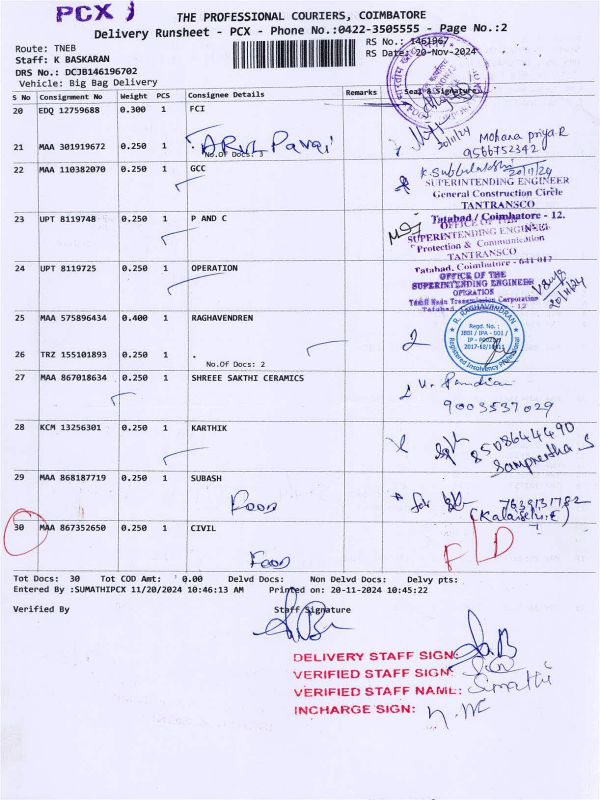 PCX
THE PROFESSIONAL COURIERS, COIMBATORE
Delivery Runsheet - PCX - Phone No.:0422-3505555 - Page No.:2
Route: TNEB
RS No.: 1461967
Staff: K BASKARAN
RS Date: 20-Nov-2024
DRS No.: DCJB146196702
Vehicle: Big Bag Delivery
S No Consignment No Weight PCS Consignee Details Remarks Seal & Signature
20 EDQ 12759688 0.300 1 FCI
20/11/24
Mohana priya.R
9566752342
21 MAA 301919672 0.250 1 .
No.Of Docs: 3
22 MAA 110382070 0.250 1 GCC
20/11/24
SUPERINTENDING ENGINEER
General Construction Circle
TANTRANSCO
Tatabad / Coimbatore - 12.
23 UPT 8119748 0.250 1 P AND C
OFFICE OF THE
SUPERINTENDING ENGINEER
Protection & Communication
TANTRANSCO
Tatabad, Coimbatore - 641 012
24 UPT 8119725 0.250 1 OPERATION
OFFICE OF THE
SUPERINTENDING ENGINEER
OPERATION
Tamil Nadu Transmission Corporation
20/11/24
25 MAA 575896434 0.400 1 RAGHAVENDREN
R. RAGHAVENDRAN
Regd. No. :
IBBI / IPA - 001 /
Registered Insolvency Professional
26 TRZ 155101893 0.250 1 .
No.Of Docs: 2
27 MAA 867018634 0.250 1 SHREEE SAKTHI CERAMICS
9003537029
28 KCM 13256301 0.250 1 KARTHIK
8508644490
Sampreetha S
29 MAA 868187719 0.250 1 SUBASH
Food
for
(Kalaiselvi.E)
30 MAA 867352650 0.250 1 CIVIL
Food
F/D
Tot Docs: 30 Tot COD Amt: 0.00 Delvd Docs: Non Delvd Docs: Delvy pts:
Entered By :SUMATHIPCX 11/20/2024 10:46:13 AM Printed on: 20-11-2024 10:45:22
Verified By Staff Signature
DELIVERY STAFF SIGN:
VERIFIED STAFF SIGN:
VERIFIED STAFF NAME: Sumathi
INCHARGE SIGN: